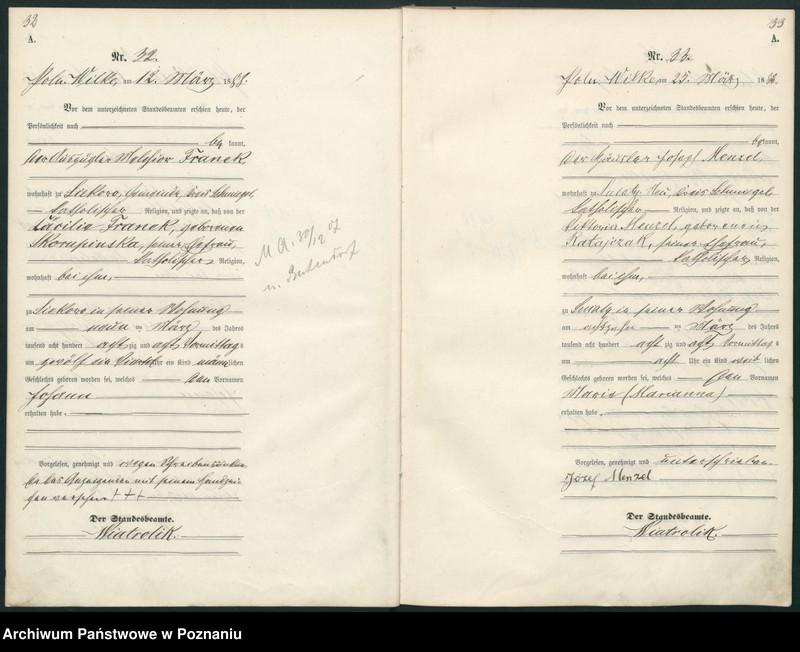 32
A.
Nr. 32.
Poln. Wilke, am 12. März 1888.
Vor dem unterzeichneten Standesbeamten erschien heute, der
Persönlichkeit nach
be kannt,
der Auszügler Melchior Franek
wohnhaft zu Siekowo, Gemeinde, Kreis Schmiegel,
katholischer Religion, und zeigte an, daß von der
Cäcilia Franek, geborenen
Skorupinska, seiner Ehefrau,
katholischer Religion,
wohnhaft bei ihm,
zu Siekowo in seiner Wohnung
am neun ten März des Jahres
tausend acht hundert acht zig und acht Vormittags
um zwölf ein Viertel Uhr ein Kind männlichen
Geschlechts geboren worden sei, welches den Vornamen
Johann
erhalten habe.
Vorgelesen, genehmigt und wegen Schreibensunkun-
de des Anzeigenden mit seinem Handzei-
chen versehen +++
Der Standesbeamte.
Wiatrolik.
M A. 30/12 07
33
A.
Nr. 33.
Poln. Wilke, am 25. März 1888.
Vor dem unterzeichneten Standesbeamten erschien heute, der
Persönlichkeit nach
be kannt,
der Häusler Josef Menzel,
wohnhaft zu Neu, Kreis Schmiegel
katholischer Religion, und zeigte an, daß von der
Viktoria Menzel, geborenen
Ratajczak, seiner Ehefrau,
katholischer Religion,
wohnhaft bei ihm,
zu in seiner Wohnung
am achtzehn ten März des Jahres
tausend acht hundert acht zig und acht Vormittags
um acht Uhr ein Kind weib lichen
Geschlechts geboren worden sei, welches den Vornamen
Maria (Marianna)
erhalten habe.
Vorgelesen, genehmigt und unterschrieben.
Józef Menzel
Der Standesbeamte.
Wiatrolik.
Archiwum Państwowe w Poznaniu